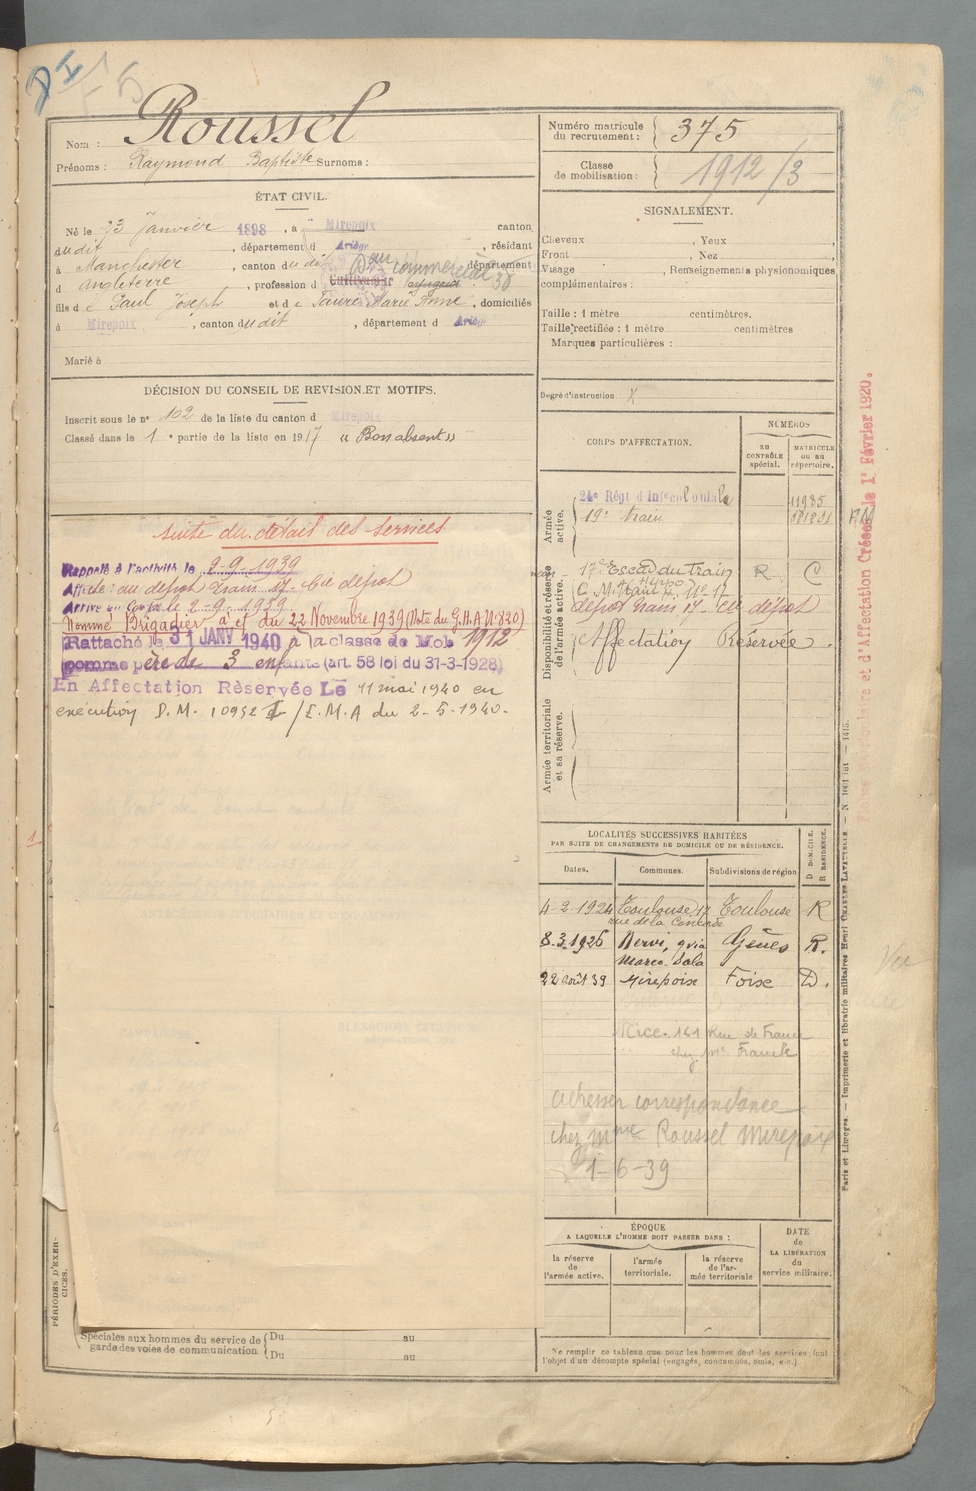 Roussel
Nom :
Prénoms : Raymond Baptiste Surnoms :
ÉTAT CIVIL.
Né le 23 Janvier 1898, à Mirepoix canton
dudit, département d Ariège, résidant
à Manchester, canton dudit, département
d Angleterre, profession d commercial
fils de Paul Joseph et de Marie Anne, domiciliés
à Mirepoix, canton dudit, département d Ariège
Marié à
DÉCISION DU CONSEIL DE REVISION ET MOTIFS.
Inscrit sous le n° 102 de la liste du canton d Mirepoix
Classé dans le 1e partie de la liste en 1917 « Bon absent »
suite du détail des services
Rappelé à l'activité le 2-9-1939
Affecté au dépôt train 17 - Cie dépôt
Arrivé au Corps le 2-9-1939
Nommé Brigadier à cf du 22 Novembre 1939 (Note du G.H.A. N° 820)
Rattaché le 31 JANV 1940 à la classe de Mob 1912
comme père de 3 enfants (art. 58 loi du 31-3-1928)
En Affectation Rèservée Le 11 mai 1940 en
exécution D.M. 10952 I/E.M.A du 2-5-1940.
PÉRIODES D'EXERCICES.
Spéciales aux hommes du service de garde des voies de communication
Du au
Du au
Numéro matricule du recrutement : 375
Classe de mobilisation : 1912/3
SIGNALEMENT.
Cheveux , Yeux
Front , Nez
Visage , Renseignements physionomiques
complémentaires :
Taille : 1 mètre centimètres.
Taille rectifiée : 1 mètre centimètres
Marques particulières :
Degré d'instruction X
CORPS D'AFFECTATION.
NUMÉROS
AU CONTRÔLE spécial.
MATRICULE OU AU répertoire.
Armée active.
24e Régt d'Inf coloniale 11985
19e train
Disponibilité et réserve de l'armée active.
17e Escad du Train R C
dépôt train 17 - Cie dépôt
Affectation Réservée.
Armée territoriale et sa réserve.
LOCALITÉS SUCCESSIVES HABITÉES
PAR SUITE DE CHANGEMENTS DE DOMICILE OU DE RÉSIDENCE.
D DOMICILE. R RÉSIDENCE.
Dates. Communes. Subdivisions de région
4-2-1924 Toulouse 17 Toulouse R
rue de la Concorde
8.3.1926 Nervi, 9 via Gênes R.
Marco Sala
22 août 39 Mirepoise Foise D.
Nice. 161 Rue de France
chez Mr Franck
adresser correspondance
chez Mme Roussel Mirepoix
1-6-39
ÉPOQUE
A LAQUELLE L'HOMME DOIT PASSER DANS :
la réserve de l'armée active.
l'armée territoriale.
la réserve de l'armée territoriale
DATE de LA LIBÉRATION du service militaire.
Ne remplir ce tableau que pour les hommes dont les services font
l'objet d'un décompte spécial (engagés, condamnés, omis, etc.)
Paris et Limoges. — Imprimerie et librairie militaires Henri CHARLES-LAVAUZELLE. —
et d'Affectation Créées le 1er Février 1920.